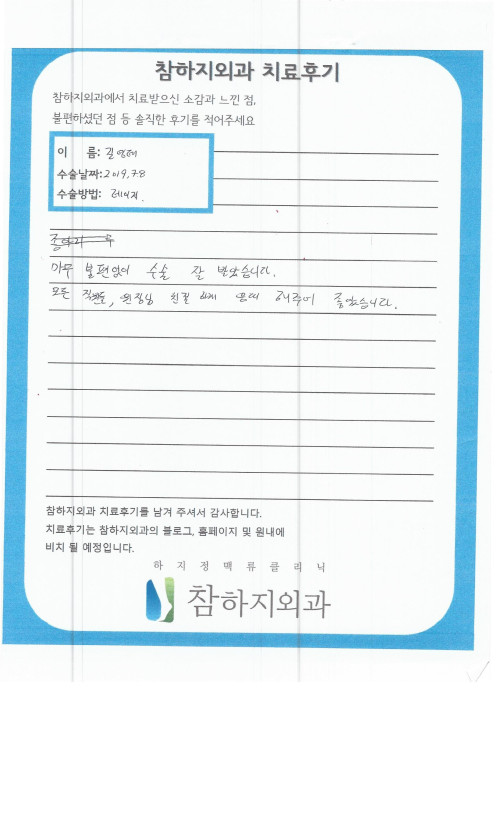 참하지외과 치료후기
참하지외과에서 치료받으신 소감과 느낀 점,
불편하셨던 점 등 솔직한 후기를 적어주세요
이 름: 길영해
수술날짜: 2019.7.8
수술방법: 레이저.
아무 불편없이 수술 잘 받았습니다.
모든 직원들, 원장님 친절하게 해주어 좋았습니다.
참하지외과 치료후기를 남겨 주셔서 감사합니다.
치료후기는 참하지외과의 블로그, 홈페이지 및 원내에
비치 될 예정입니다.
하지정맥류클리닉
참하지외과